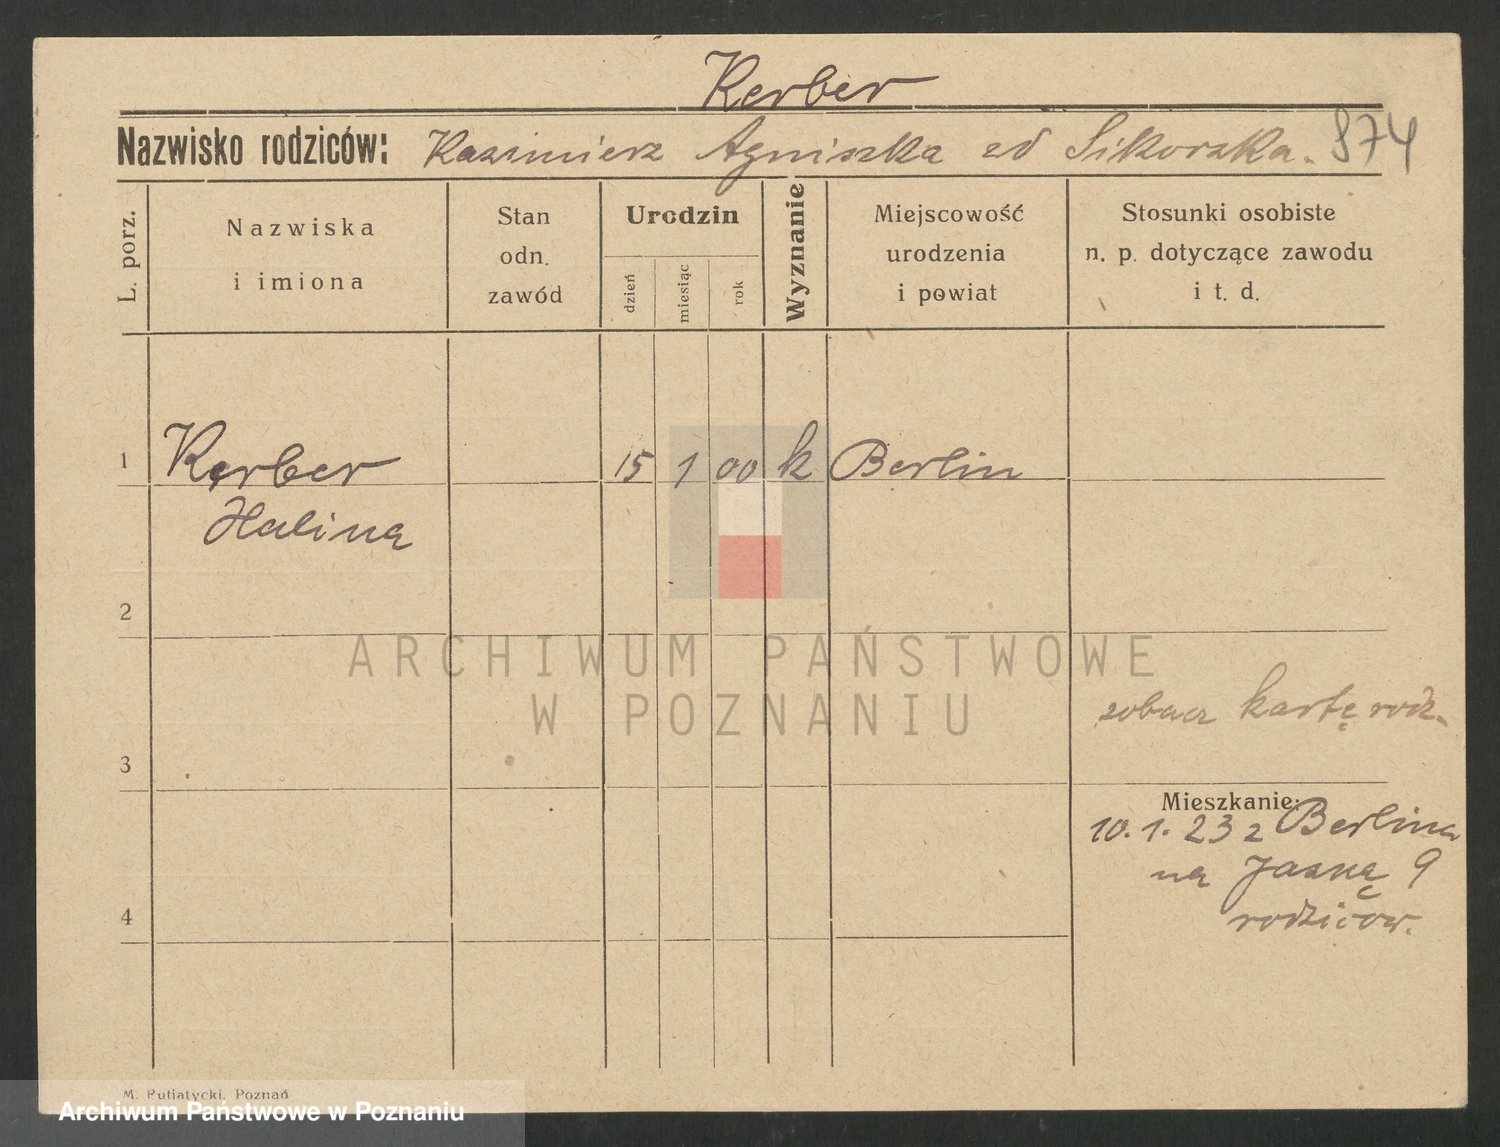 Kerber
Nazwisko rodziców: Kazimierz Agniszka zd Sikorska. 874
L. porz.
Nazwiska
i imiona
Stan
odn.
zawód
Urodzin
dzień
miesiąc
rok
Wyznanie
Miejscowość
urodzenia
i powiat
Stosunki osobiste
n. p. dotyczące zawodu
i t. d.
1 Kerber 15 1 00 k Berlin
Halina
2
ARCHIWUM PAŃSTWOWE
W POZNANIU
zobacz kartę rodz.
3
Mieszkanie:
10. 1. 23 z Berlina
na Jasną 9
rodziców.
4
M. Putiatycki, Poznań
Archiwum Państwowe w Poznaniu